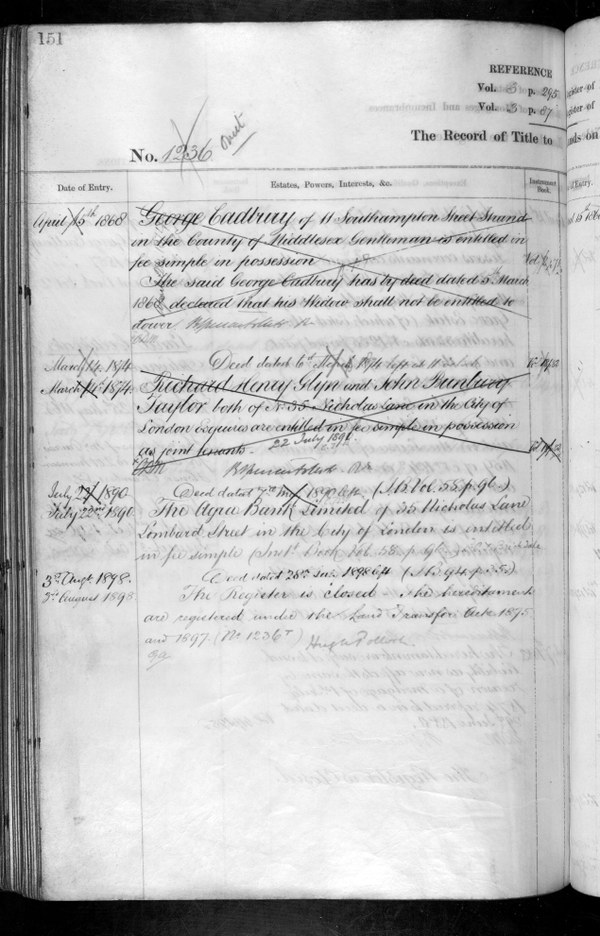 151
REFERENCE
Vol. 3 p. 295
Vol. 3 p. 87
The Record of Title to
No. 1236
Date of Entry.
Estates, Powers, Interests, &c.
Instrument Book.
April 15th 1868
George Cadbury of 11 Southampton Street Strand
in the County of Middlesex Gentleman is entitled in
fee simple in possession
The said George Cadbury has by deed dated 5th March
1868 declared that his Widow shall not be entitled to
dower
March 14. 1874
Deed dated 6th March 1874 left at 11 o'clock
March 14th 1874.
Richard Henry Glyn and John Bunbury
Taylor both of No 35 Nicholas Lane in the City of
London esquires are entitled in fee simple in possession
as joint tenants.
22 July 1890.
July 22 1890
Deed dated 7th May 1890 (I.B. Vol. 55. p. 96.)
July 22nd 1890
The Agra Bank Limited of 35 Nicholas Lane
Lombard Street in the City of London is entitled
in fee simple (Inst. Book Vol. 55. p. 96)
3rd Augt. 1898.
Deed dated 28th 1898 (I.B. 94. p. 35.)
3rd August 1898
The Register is closed. The hereditaments
are registered under the Land Transfer Acts 1875
and 1897 (No 1236T) Hugh Pollock.